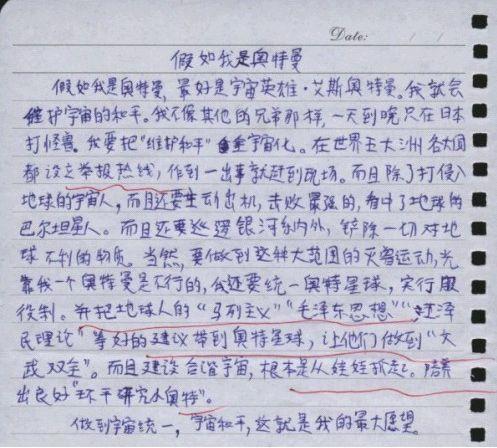 Date: / /
假如我是奥特曼
假如我是奥特曼,最好是宇宙英雄·艾斯奥特曼。我就会
维护宇宙的和平。我不像其他的兄弟那样,一天到晚只在日本
打怪兽。我要把“维护和平”宇宙化。在世界五大洲各大国
都设立举报热线,作到一出事就赶到现场。而且除了打侵入
地球的宇宙人,而且还要主动出机,击败嚣强的,看中了地球的
巴尔坦星人。而且还要巡逻银河系内外,铲除一切对地
球不利的物质。当然,要做到这种大范围的灭害运动,光
靠我一个奥特曼是不行的,我还要统一奥特星球,实行服
役制。并把地球人的“马列主义”“毛泽东思想”“江泽
民理论”等好的建议带到奥特星球,让他们做到“文
武双全”。而且建设合谐宇宙,根本是从娃娃抓起。培养
出良好“环干研究小奥特”。
做到宇宙统一,宇宙和平,这就是我的最大愿望。